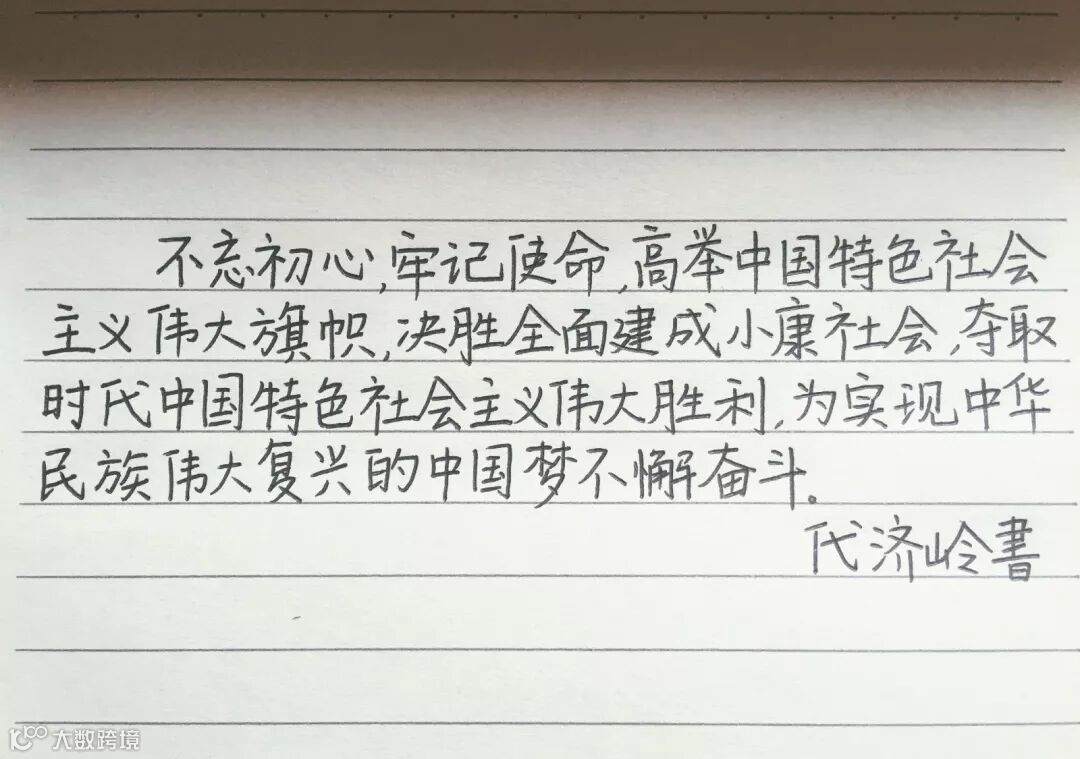 不忘初心,牢记使命,高举中国特色社会
主义伟大旗帜,决胜全面建成小康社会,夺取
时代中国特色社会主义伟大胜利,为实现中华
民族伟大复兴的中国梦不懈奋斗。
代济岭書
大数跨境